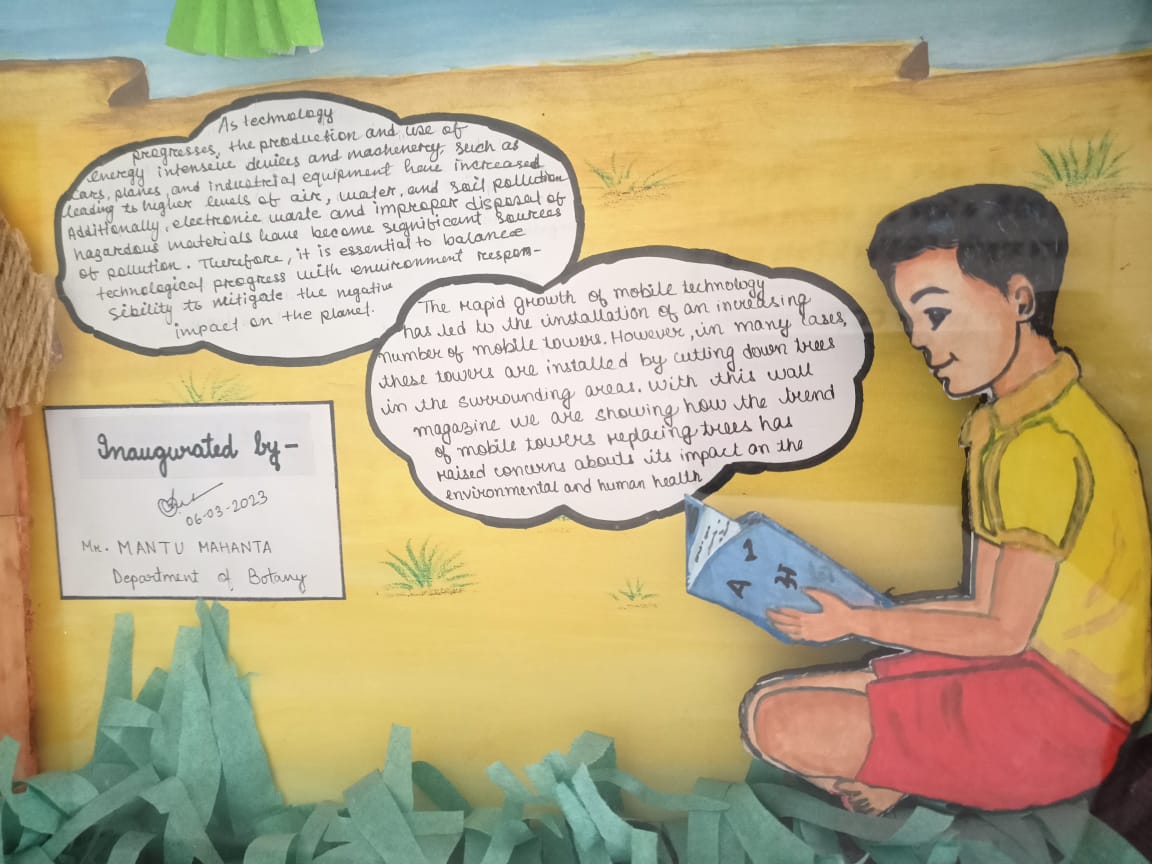 As technology
progresses, the production and use of
energy intensive devices and machenery, such as
cars, planes, and industrial equipment have increased
leading to higher levels of air, water, and soil pollution
Additionally, electronic waste and improper disposal of
hazardous materials have become significant sources
of pollution. Therefore, it is essential to balance
technological progress with environment respon-
sibility to mitigate the negative
impact on the planet.
The rapid growth of mobile technology
has led to the installation of an increasing
number of mobile towers. However, in many cases,
these towers are installed by cutting down trees
in the surrounding areas. With this wall
magazine we are showing how the trend
of mobile towers replacing trees has
raised concerns abouts its impact on the
environmental and human health
Inaugurated by-
06-03-2023
Mr. MANTU MAHANTA
Department of Botany
A 1 अ